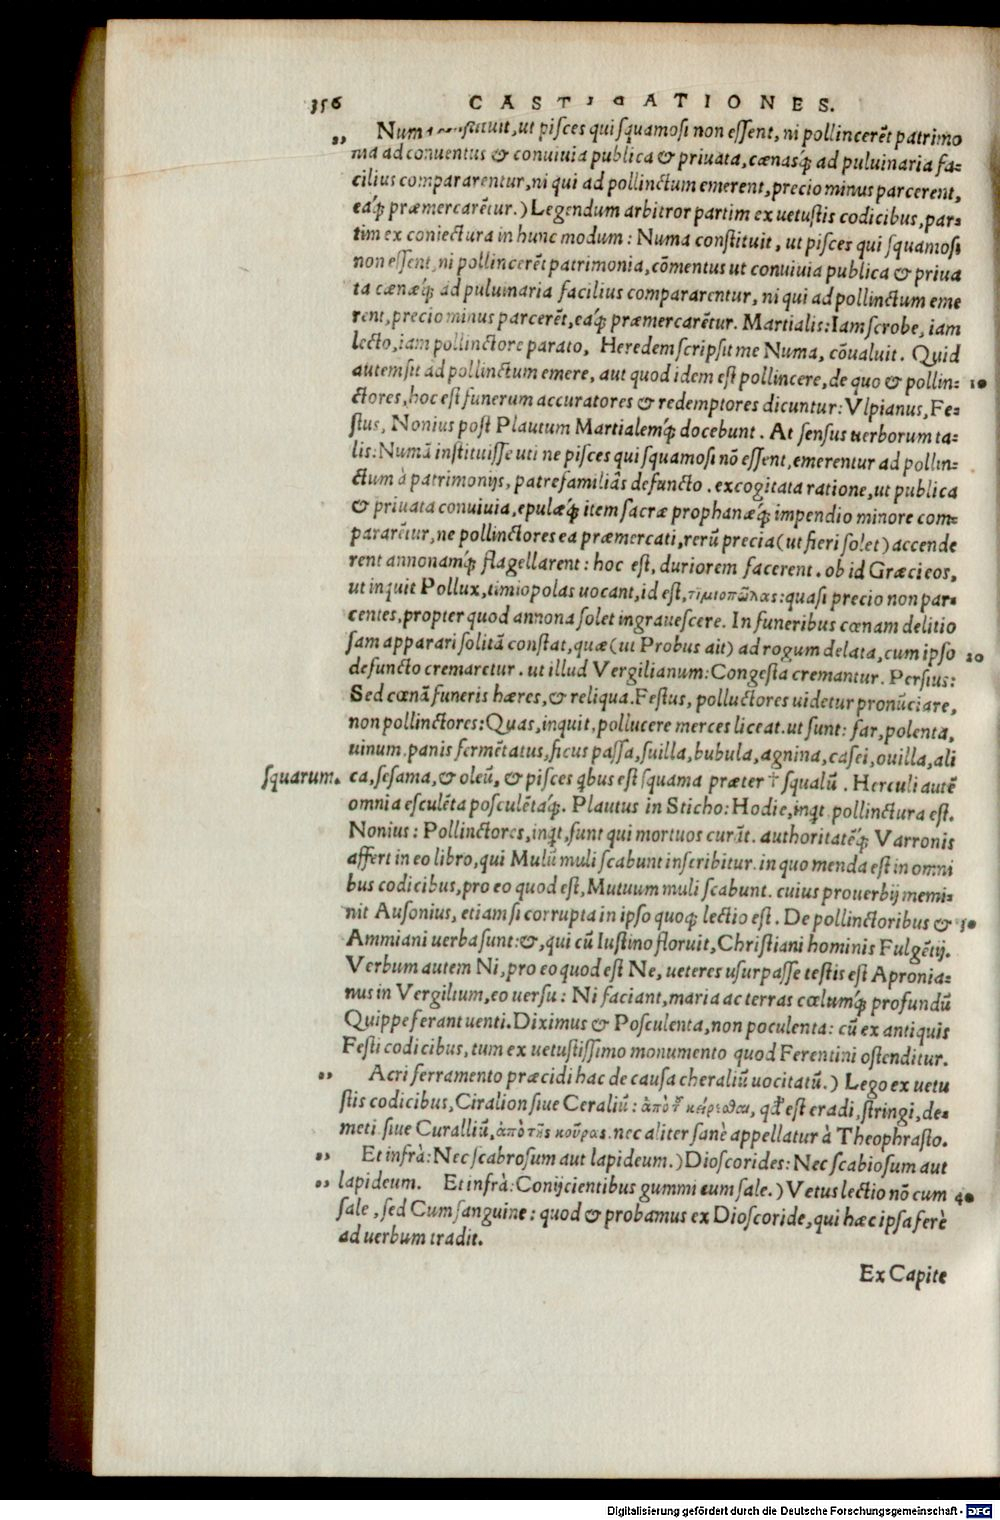 356 CASTIGATIONES.
„ Numa constituit, ut pisces qui squamosi non essent, ni pollincerēt patrimo
nia ad conuentus & conuiuia publica & priuata, cænasq́; ad puluinaria fa-
cilius compararentur, ni qui ad pollinctum emerent, precio minus parcerent,
eaq́; præmercarētur.) Legendum arbitror partim ex uetustis codicibus, par-
tim ex coniectura in hunc modum: Numa constituit, ut pisces qui squamosi
non essent, ni pollincerēt patrimonia, cōmentus ut conuiuia publica & priua
ta cænæq́; ad puluinaria facilius compararentur, ni qui ad pollinctum eme
rent, precio minus parcerēt, eaq́; præmercarētur. Martialis: Iam scrobe, iam
lecto, iam pollinctore parato, Heredem scripsit me Numa, cōualuit. Quid
autem sit ad pollinctum emere, aut quod idem est pollincere, de quo & pollin- 10
ctores, hoc est funerum accuratores & redemptores dicuntur: Vlpianus, Fe-
stus, Nonius post Plautum Martialemq́; docebunt. At sensus uerborum ta-
lis: Numā instituisse uti ne pisces qui squamosi nō essent, emerentur ad pollin-
ctum à patrimonijs, patrefamiliâs defuncto. excogitata ratione, ut publica
& priuata conuiuia, epulæq́; item sacræ prophanæq́; impendio minore com-
pararētur, ne pollinctores ea præmercati, rerū precia (ut fieri solet) accende
rent annonamq́; flagellarent: hoc est, duriorem facerent. ob id Græci eos,
ut inquit Pollux, timiopolas uocant, id est, τιμιοπῶλας: quasi precio non par-
centes, propter quod annona solet ingrauescere. In funeribus cœnam delitio
sam apparari solitā constat, quæ (ut Probus ait) ad rogum delata, cum ipso 20
defuncto cremaretur. ut illud Vergilianum: Congesta cremantur. Persius:
Sed cœnā funeris hæres, & reliqua. Festus, polluctores uidetur pronūciare,
non pollinctores: Quas, inquit, pollucere merces liceat. ut sunt: far, polenta,
uinum, panis fermētatus, ficus passa, suilla, bubula, agnina, casei, ouilla, ali
squarum. ca, sesama, & oleū, & pisces qbus est squama præter † squalū. Herculi autē
omnia esculēta posculētaq́;. Plautus in Sticho: Hodie, inqt, pollinctura est.
Nonius: Pollinctores, inqt, sunt qui mortuos curāt. authoritatēq́; Varronis
affert in eo libro, qui Mulū muli scabunt inscribitur. in quo menda est in omni
bus codicibus, pro eo quod est, Mutuum muli scabunt. cuius prouerbij memi-
nit Ausonius, etiam si corrupta in ipso quoq; lectio est. De pollinctoribus & 30
Ammiani uerba sunt: &, qui cū Iustino floruit, Christiani hominis Fulgētij.
Verbum autem Ni, pro eo quod est Ne, ueteres usurpasse testis est Apronia-
nus in Vergilium, eo uersu: Ni faciant, maria ac terras cœlumq́; profundū
Quippe ferant uenti. Diximus & Posculenta, non poculenta: cū ex antiquis
Festi codicibus, tum ex uetustissimo monumento quod Ferentini ostenditur.
„ Acri ferramento præcidi hac de causa cheraliū uocitatū.) Lego ex uetu
stis codicibus, Ciralion siue Ceraliū: ἀπὸ τ͂ κείρεσθαι, qd̕ est eradi, stringi, de-
meti. siue Curalliū, ἀπὸ τῆς κουρᾶς. nec aliter sanè appellatur à Theophrasto.
„ Et infrà: Nec scabrosum aut lapideum.) Dioscorides: Nec scabiosum aut
„ lapideum. Et infrà: Conijcientibus gummi cum sale.) Vetus lectio nō cum 40
sale, sed Cum sanguine: quod & probamus ex Dioscoride, qui hæc ipsa ferè
ad uerbum tradit.
Ex Capite
Digitalisierung gefördert durch die Deutsche Forschungsgemeinschaft - DFG